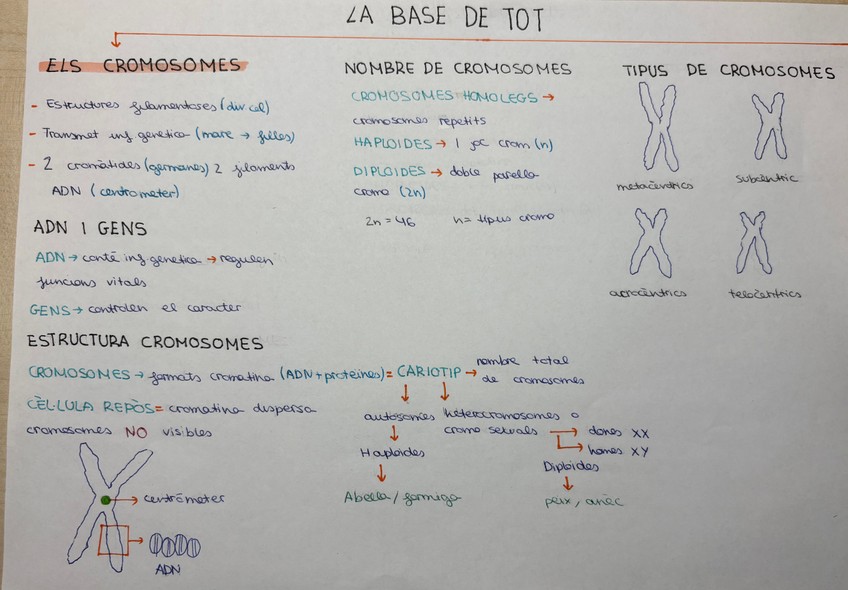 LA BASE DE TOT
ELS CROMOSOMES
- Estructures filamentoses (div cel)
- Transmet inf genètica (mare → filles)
- 2 cromàtides (germanes) 2 filaments
ADN (centròmeter)
ADN I GENS
ADN → conté inf genètica → regulen
funcions vitals
GENS → controlen el caracter
NOMBRE DE CROMOSOMES
CROMOSOMES HOMÒLEGS →
cromosomes repetits
HAPLOIDES → 1 joc crom (n)
DIPLOIDES → doble parella
cromo (2n)
2n = 46 n = tipus cromo
TIPUS DE CROMOSOMES
metacèntrics
subcèntric
acrocèntrics
telocèntrics
ESTRUCTURA CROMOSOMES
CROMOSOMES → formats cromatina (ADN + proteïnes) = CARIOTIP → nombre total
de cromosomes
CÈL·LULA REPÒS = cromatina dispersa
cromosomes NO visibles
centròmeter
ADN
autosomes
Haploides
Abella / formiga
heterocromosomes o
cromo sexuals → dones XX
→ homes XY
Diploides
peix, ànec